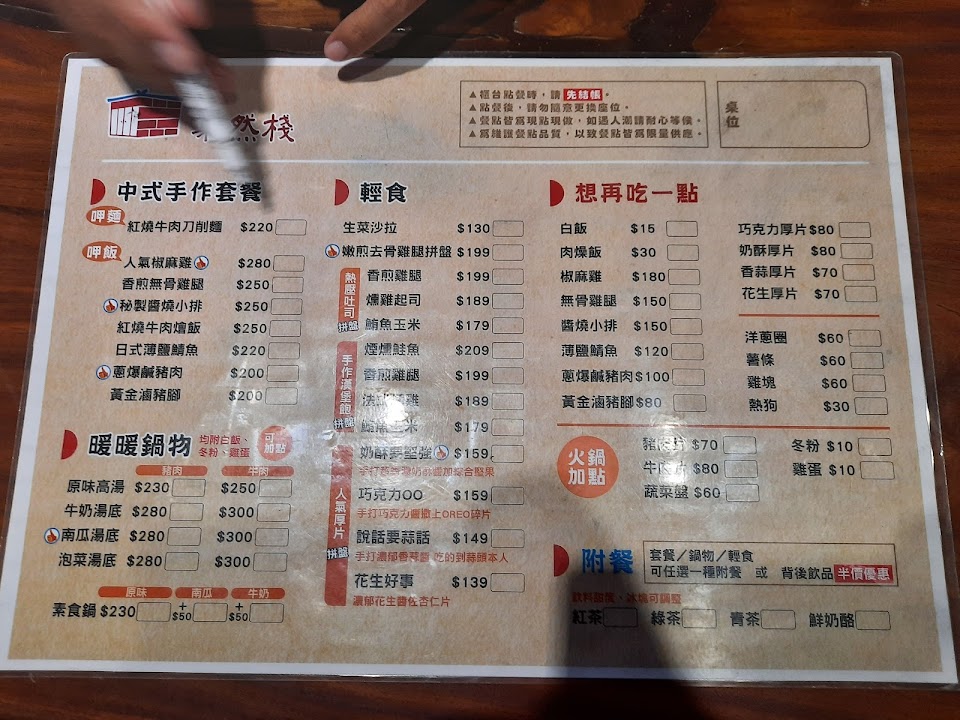 然棧
▲櫃台點餐時，請 先結帳。
▲點餐後，請勿隨意更換座位。
▲餐點皆為現點現做，如遇人潮請耐心等候。
▲為維護餐點品質，以致餐點皆為限量供應。
桌位
中式手作套餐
呷麵
紅燒牛肉刀削麵 $220
呷飯
人氣椒麻雞 $280
香煎無骨雞腿 $250
秘製醬燒小排 $250
紅燒牛肉燴飯 $250
日式薄鹽鯖魚 $220
蔥爆鹹豬肉 $200
黃金滷豬腳 $200
暖暖鍋物 均附白飯、冬粉、雞蛋 可加點
豬肉 牛肉
原味高湯 $230 $250
牛奶湯底 $280 $300
南瓜湯底 $280 $300
泡菜湯底 $280 $300
原味 南瓜 牛奶
素食鍋 $230 +$50 +$50
輕食
生菜沙拉 $130
嫩煎去骨雞腿拼盤 $199
熱壓吐司拼盤
香煎雞腿 $199
燻雞起司 $189
鮪魚玉米 $179
手作漢堡飽拼盤
煙燻鮭魚 $209
香煎雞腿 $199
雞 $189
鮪魚玉米 $179
人氣厚片拼盤
奶酥夢堅強 $159
巧克力OO $159
手打巧克力醬撒上OREO碎片
說話要蒜話 $149
手打濃郁香蒜醬 吃的到蒜頭本人
花生好事 $139
濃郁花生醬佐杏仁片
想再吃一點
白飯 $15
肉燥飯 $30
椒麻雞 $180
無骨雞腿 $150
醬燒小排 $150
薄鹽鯖魚 $120
蔥爆鹹豬肉 $100
黃金滷豬腳 $80
巧克力厚片 $80
奶酥厚片 $80
香蒜厚片 $70
花生厚片 $70
洋蔥圈 $60
薯條 $60
雞塊 $60
熱狗 $30
火鍋加點
豬肉片 $70
牛肉片 $80
蔬菜盤 $60
冬粉 $10
雞蛋 $10
附餐
套餐／鍋物／輕食
可任選一種附餐 或 背後飲品 半價優惠
飲料甜度、冰塊可調整
紅茶 綠茶 青茶 鮮奶酪